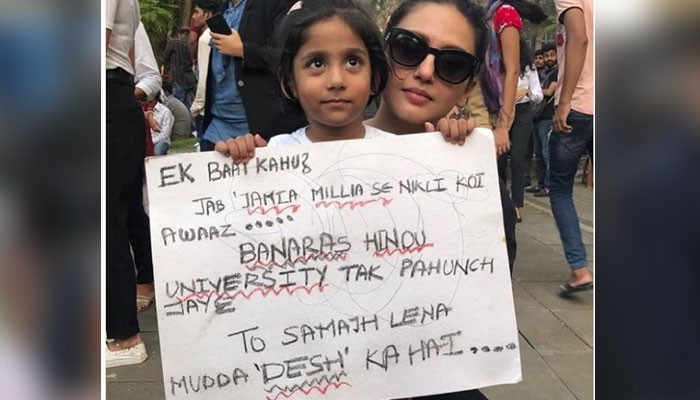 EK BAAT KAHU?
JAB 'JAMIA MILLIA SE NIKLI KOI
AWAAZ .....
BANARAS HINDU
UNIVERSITY TAK PAHUNCH
JAYE
TO SAMAJH LENA
MUDDA 'DESH' KA HAI.....